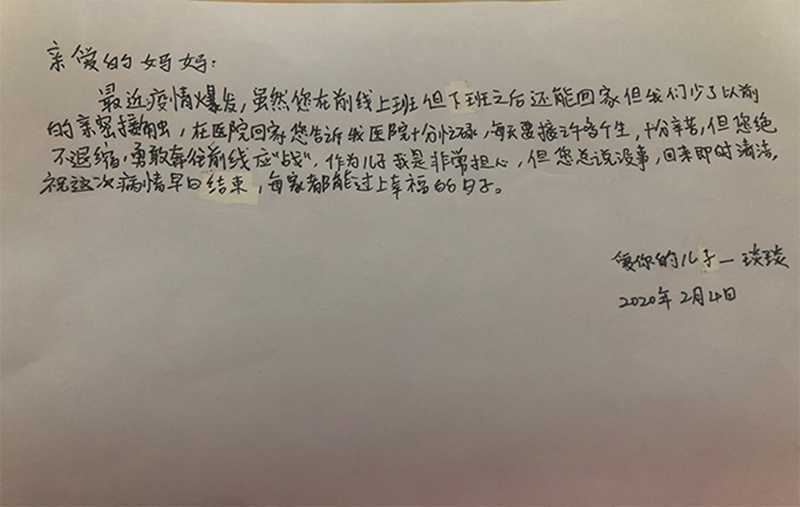 亲爱的妈妈:
最近疫情爆发,虽然您在前线上班但下班之后还能回家但我们少了以前
的亲密接触,在医院回家您告诉我医院十分忙碌,每天要接许多个生,十分辛苦,但您绝
不退缩,勇敢奔往前线应“战”,作为儿子我是非常担心,但您总说没事,回来即时清洁,
祝这次病情早日结束,每家都能过上幸福的日子。
爱你的儿子—琰琰
2020年2月4日